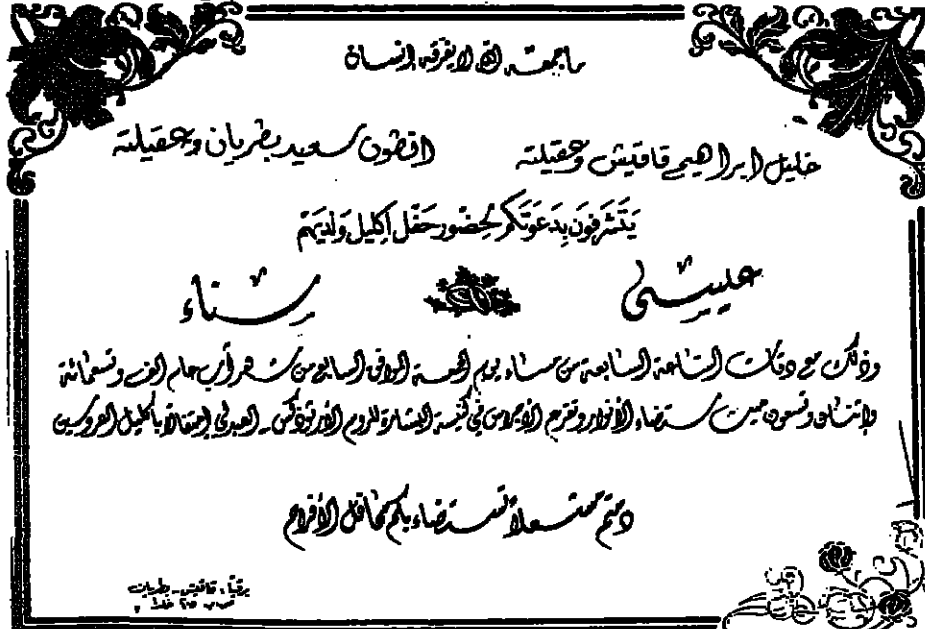 ما جمعه الله لا يفرقه إنسان
خليل ابراهيم قاقيش وعقيلته انطون سعيد بطريان وعقيلته
يَتَشَرفون بِدَعوَتكم لحِضُور حَفل اكِليل وَلدَيهم
عيسى سناء
وذلك مع دقات الساعة السابعة من مساء يوم الجمعة الموافق السابع من شهر أب عام الف وتسعمائة
واثنتان وتسعون حيث ستضاء الأنوار وتقرع الأجراس في كنيسة البشارة للروم الأرثوذكس - العبدلي إحتفالاً باكليل العروسين
دمتم مشعلاً تستضاء بكم محافل الأفراح
برقياً : قاقيش - بطريان